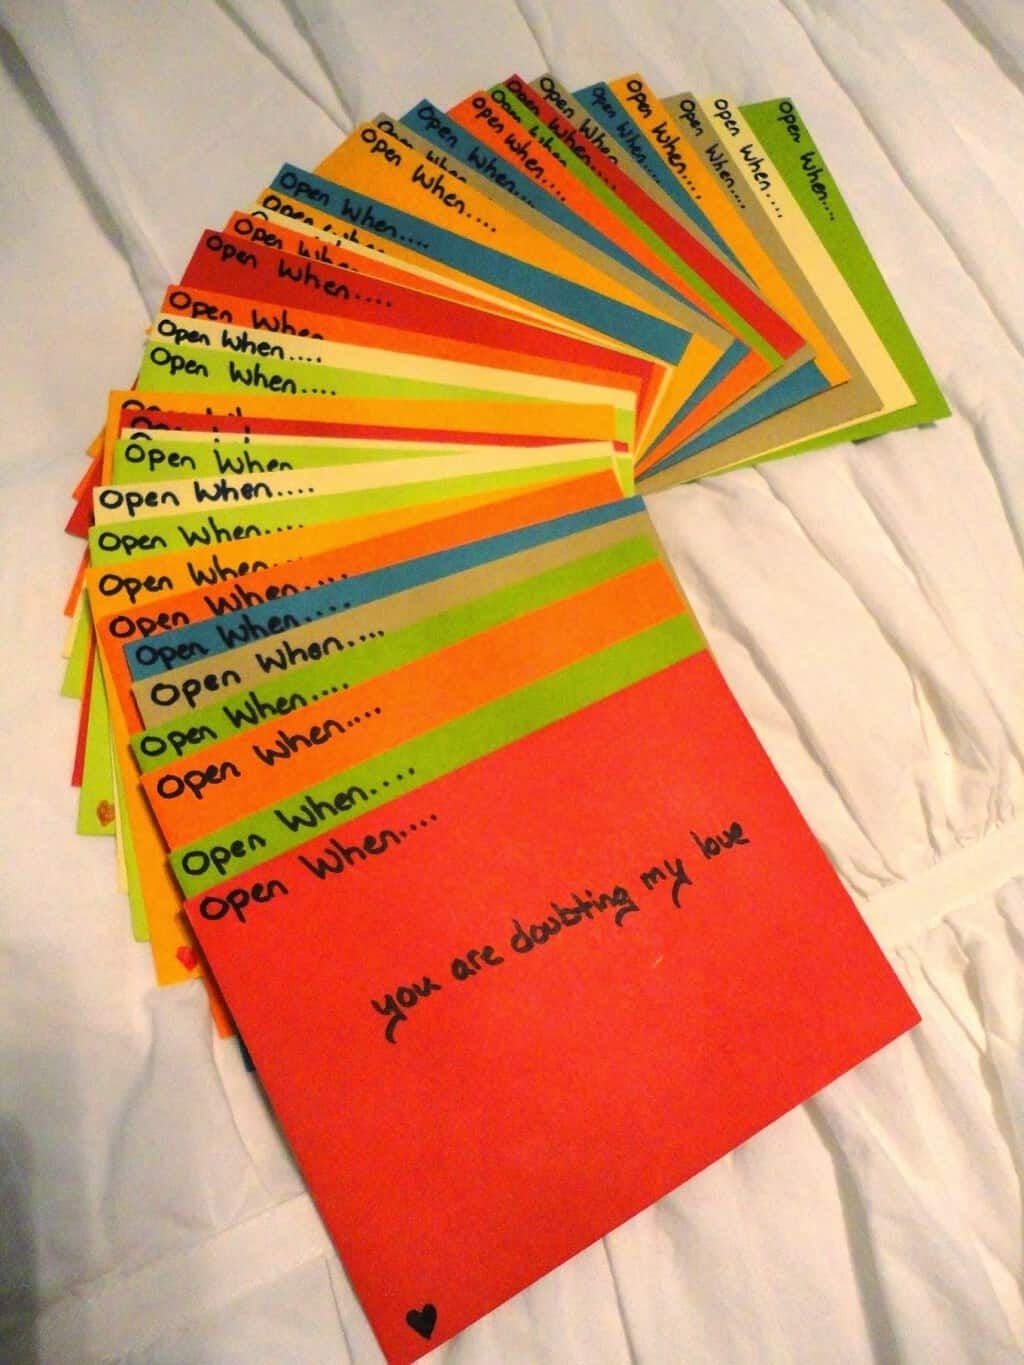 Open When....
Open When....
Open When....
Open When....
Open When....
Open When
Open When....
Open When....
Open When....
Open When....
Open When
Open When....
Open When....
Open When
Open When
Open When....
Open When
Open When....
Open When....
Open When
Open When....
Open When....
Open When....
Open When.....
Open When....
Open When....
Open When....
Open When....
Open When....
Open When....
you are doubting my love